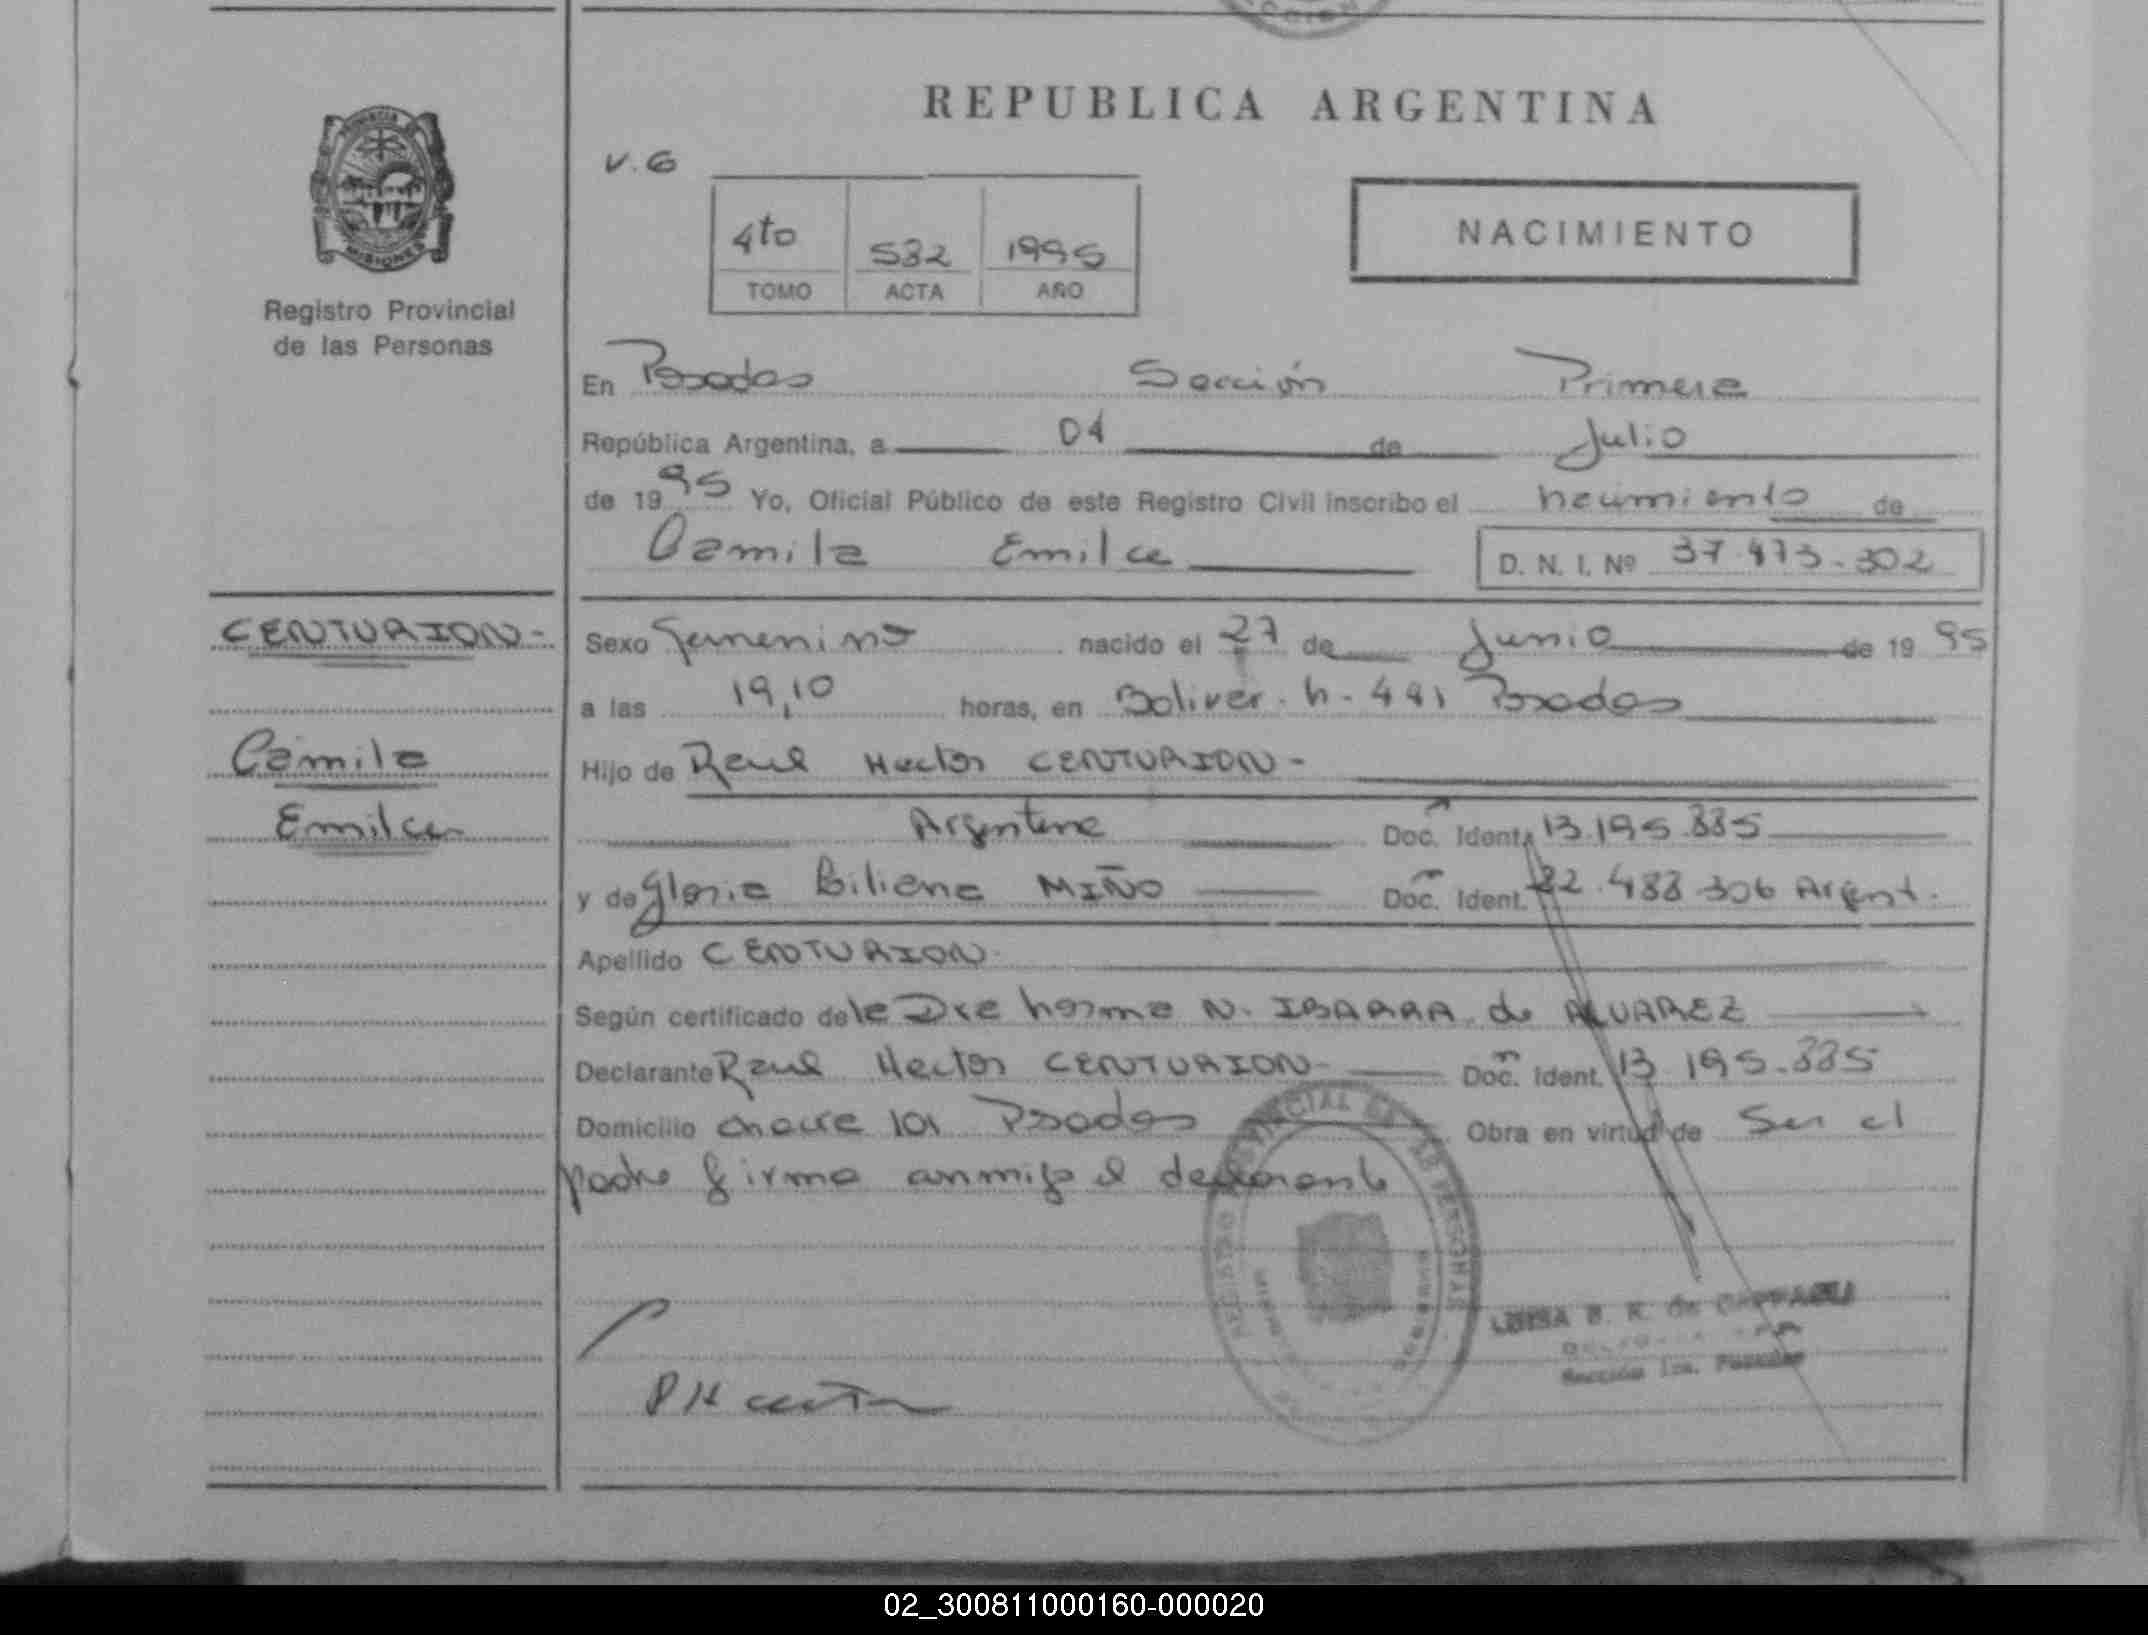 REPUBLICA ARGENTINA
V. G
4to 532 1995
TOMO ACTA AÑO
NACIMIENTO
PROVINCIA DE
MISIONES
Registro Provincial
de las Personas
En Posadas Sección Primera
República Argentina, a 04 de Julio
de 1995 Yo, Oficial Público de este Registro Civil inscribo el nacimiento de
Camila Emilce D. N. I. Nº 37.473.302
CENTURION-
Camila
Emilce
Sexo femenino nacido el 27 de Junio de 1995
a las 19,10 horas, en Bolivar. h- 481 Posadas
Hijo de Raul Hector CENTURION-
Argentina Doc. Ident. 13.195.335
y de Gloria Biliana MIÑO Doc. Ident. 22.433 306 Argent.
Apellido CENTURION
Según certificado de la Dra Norma N. IBARRA de ALVAREZ
Declarante Raul Hector CENTURION- Doc. Ident. 13 195.335
Domicilio 101 Posadas Obra en virtud de Ser el
padre firma conmigo el declarante
LUISA B. R. de
Sección 1ra. Posadas
02_300811000160-000020